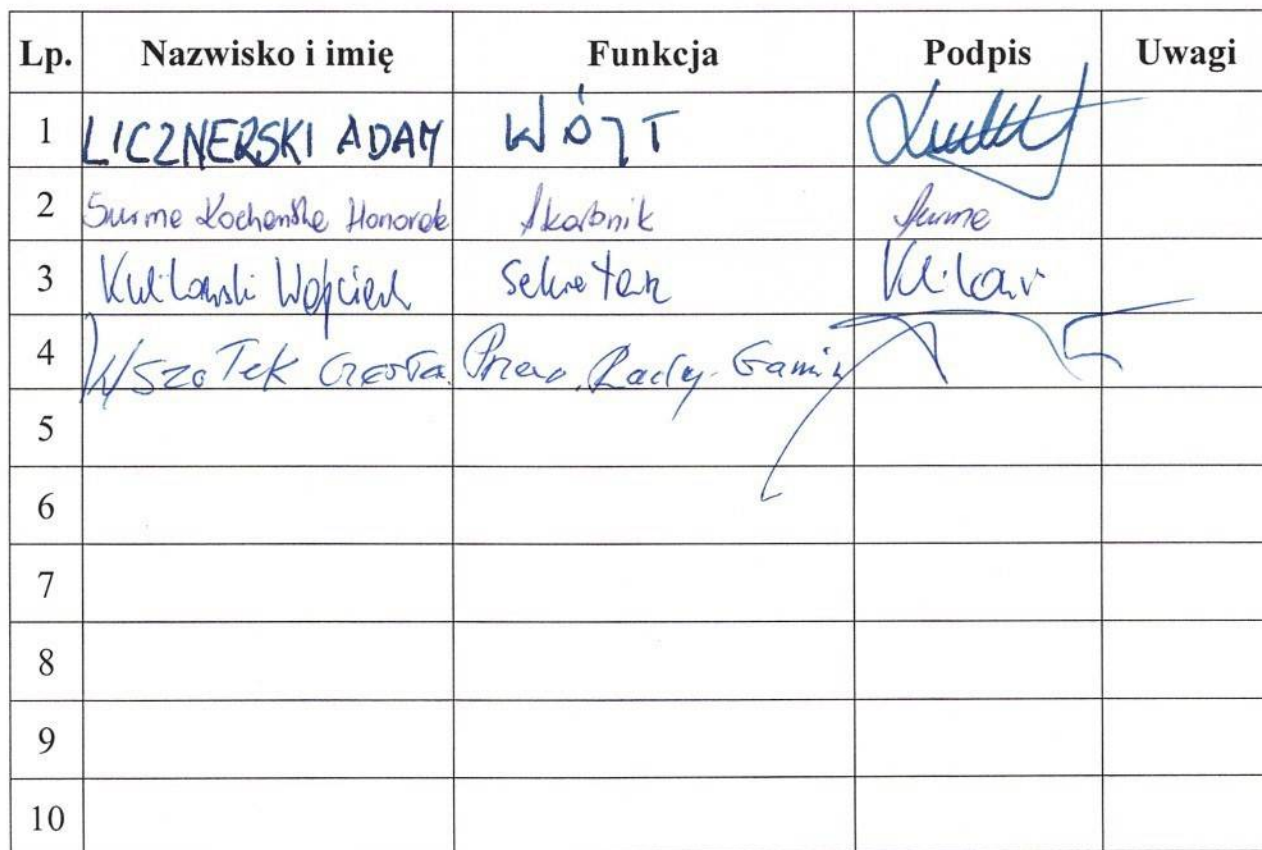 Lp. Nazwisko i imię Funkcja Podpis Uwagi
1 LICZNERSKI ADAM WÓJT
2 Surma Kochańska Honorata Skarbnik Surma
3 Wojciech Sekretarz
4 Wszołek Czesła. Przew. Rady Gminy
5
6
7
8
9
10